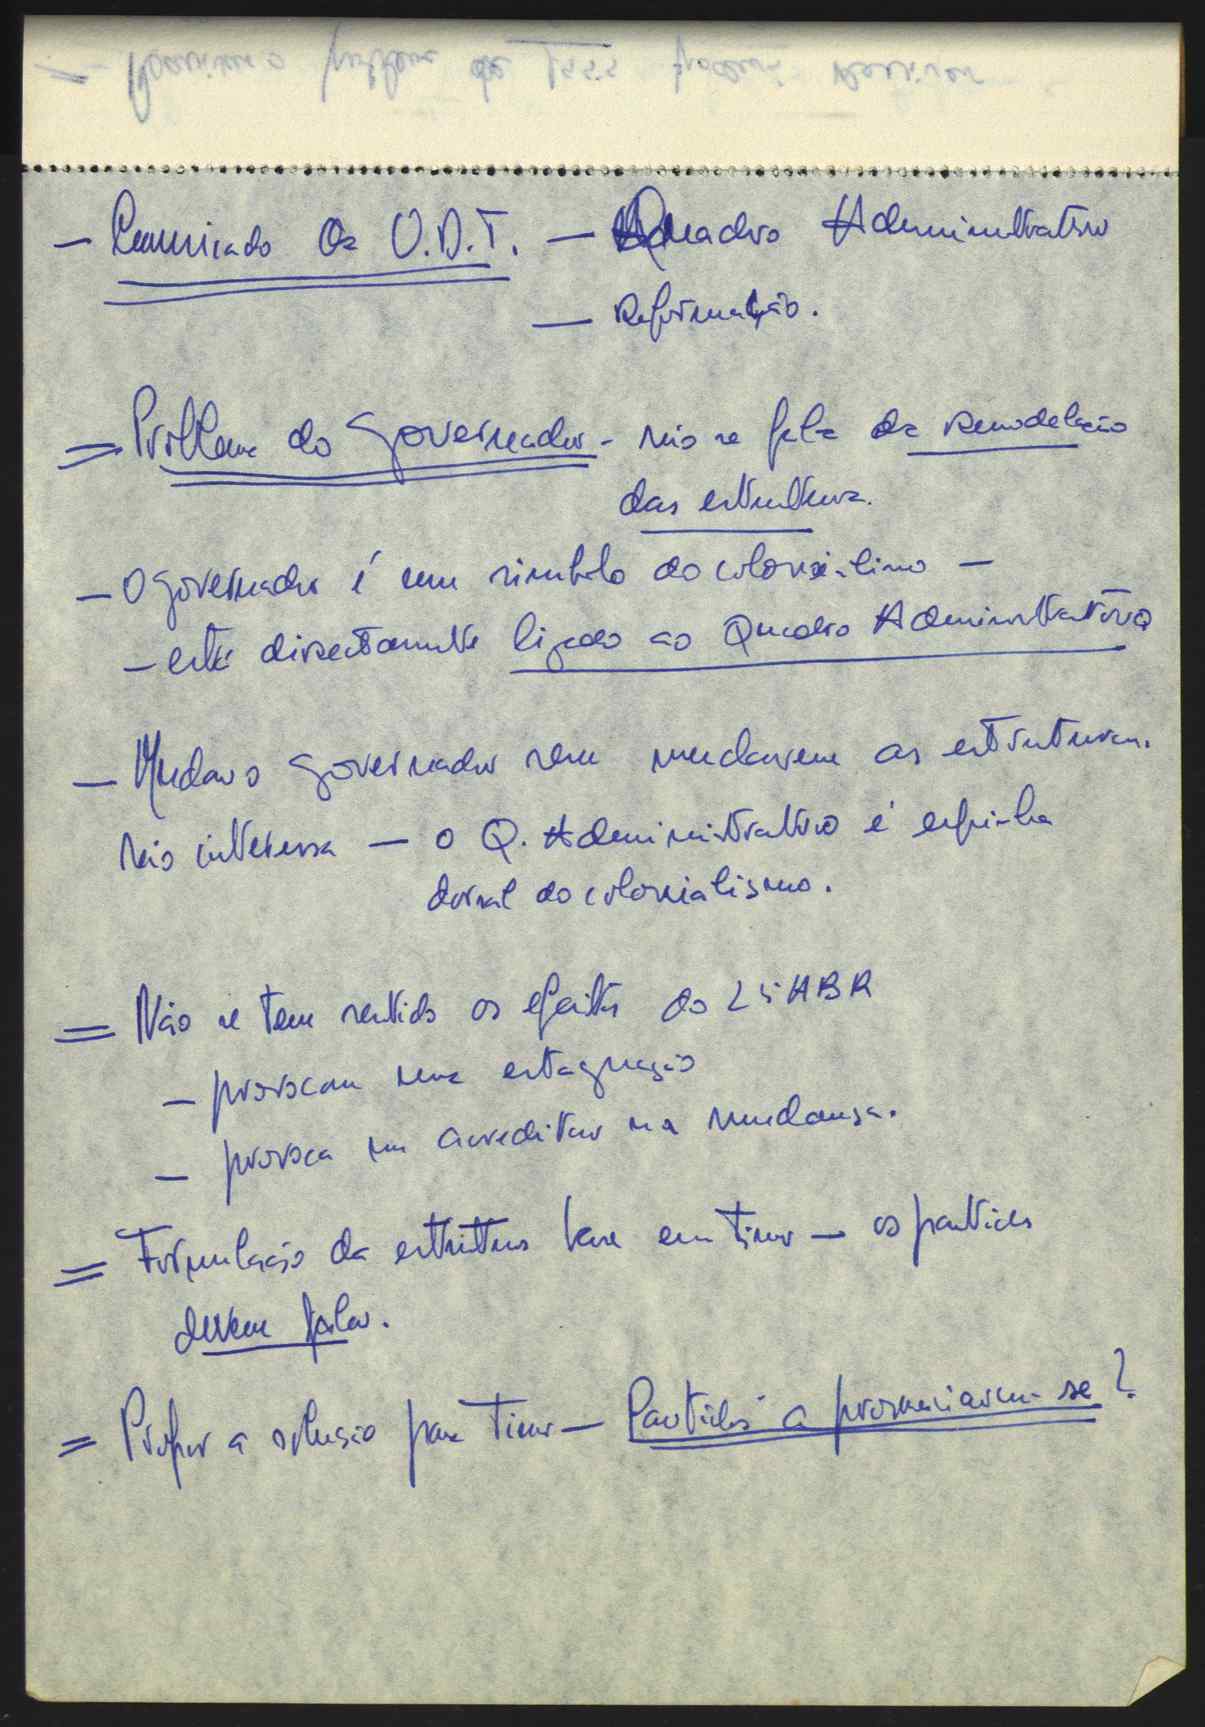 – Comunicado da U.D.T. – Quadro Administrativo
– Reformulação.
= Problema do Governador - não se fala da remodelação
das estruturas.
– O governador é um simbolo do colonialismo –
– está directamente ligado ao Quadro Administrativo
– Mudar o governador sem mudarem as estruturas.
não interessa – o Q. Administrativo é espinha
dorsal do colonialismo.
= Não se tem sentido os efeitos do 25 ABR
– provocam uma estagnação
– provoca um acreditar na mudança.
= Formulação da estrutura base em Timor – os partidos
devem falar.
= Propor a solução para Timor – Partidos a pronunciarem-se?